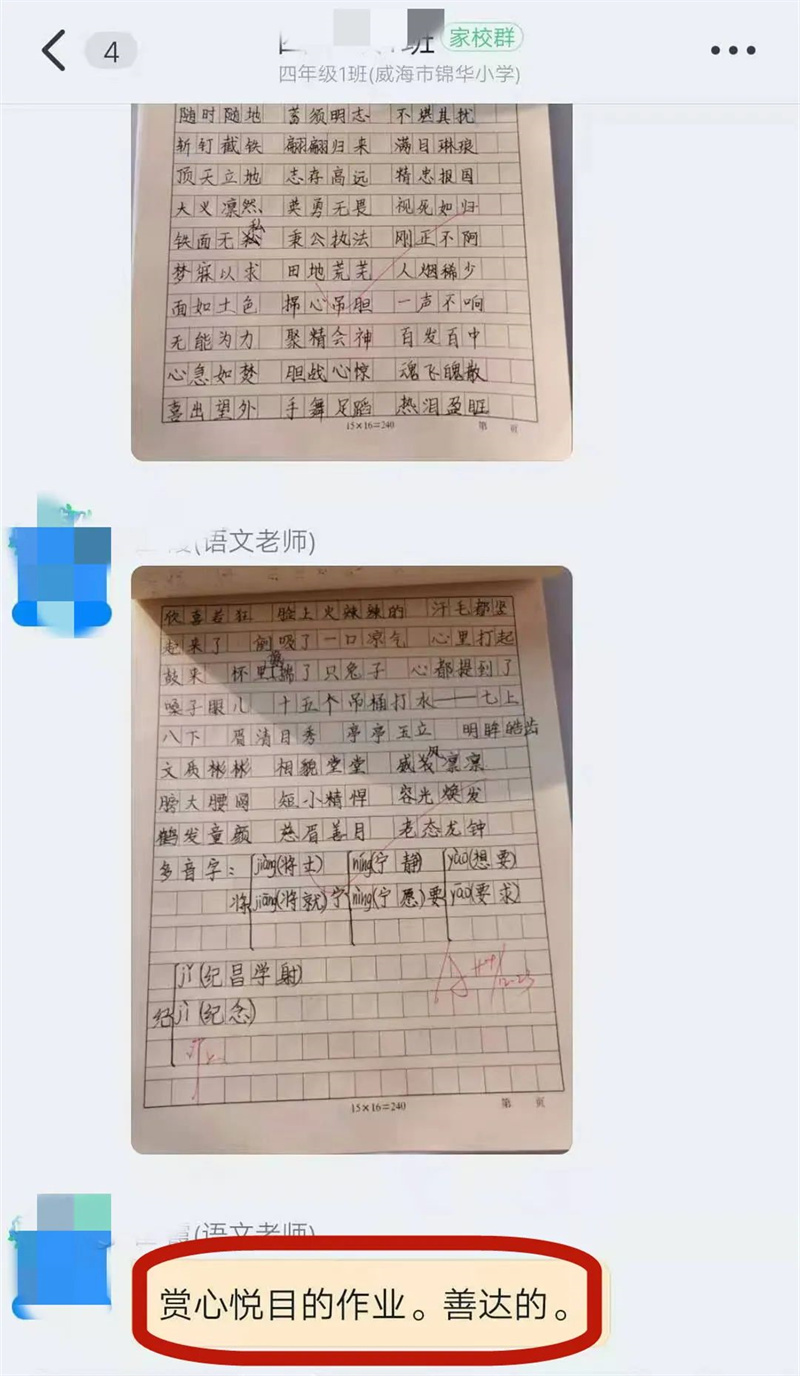 4
班 家校群
四年级1班(威海市锦华小学)
随时随地 蓄须明志 不堪其扰
斩钉截铁 翩翩归来 满目琳琅
顶天立地 志存高远 精忠报国
大义凛然 英勇无畏 视死如归
铁面无私 秉公执法 刚正不阿
梦寐以求 田地荒芜 人烟稀少
面如土色 提心吊胆 一声不响
无能为力 聚精会神 百发百中
心急如焚 胆战心惊 魂飞魄散
喜出望外 手舞足蹈 热泪盈眶
15×16=240 第 页
(语文老师)
欣喜若狂 脸上火辣辣的 汗毛都竖
起来了 倒吸了一口凉气 心里打起
鼓来 怀里揣了只兔子 心都提到了
嗓子眼儿 十五个吊桶打水——七上
八下 眉清目秀 亭亭玉立 明眸皓齿
文质彬彬 相貌堂堂 威风凛凛
膀大腰圆 短小精悍 容光焕发
鹤发童颜 慈眉善目 老态龙钟
多音字： jiàng(将士) níng(宁静) yào(想要)
将 jiāng(将就) 宁 nìng(宁愿) 要 yāo(要求)
jǐ(纪昌学射)
纪 jì(纪念)
15×16=240 第 页
(语文老师)
赏心悦目的作业。善达的。